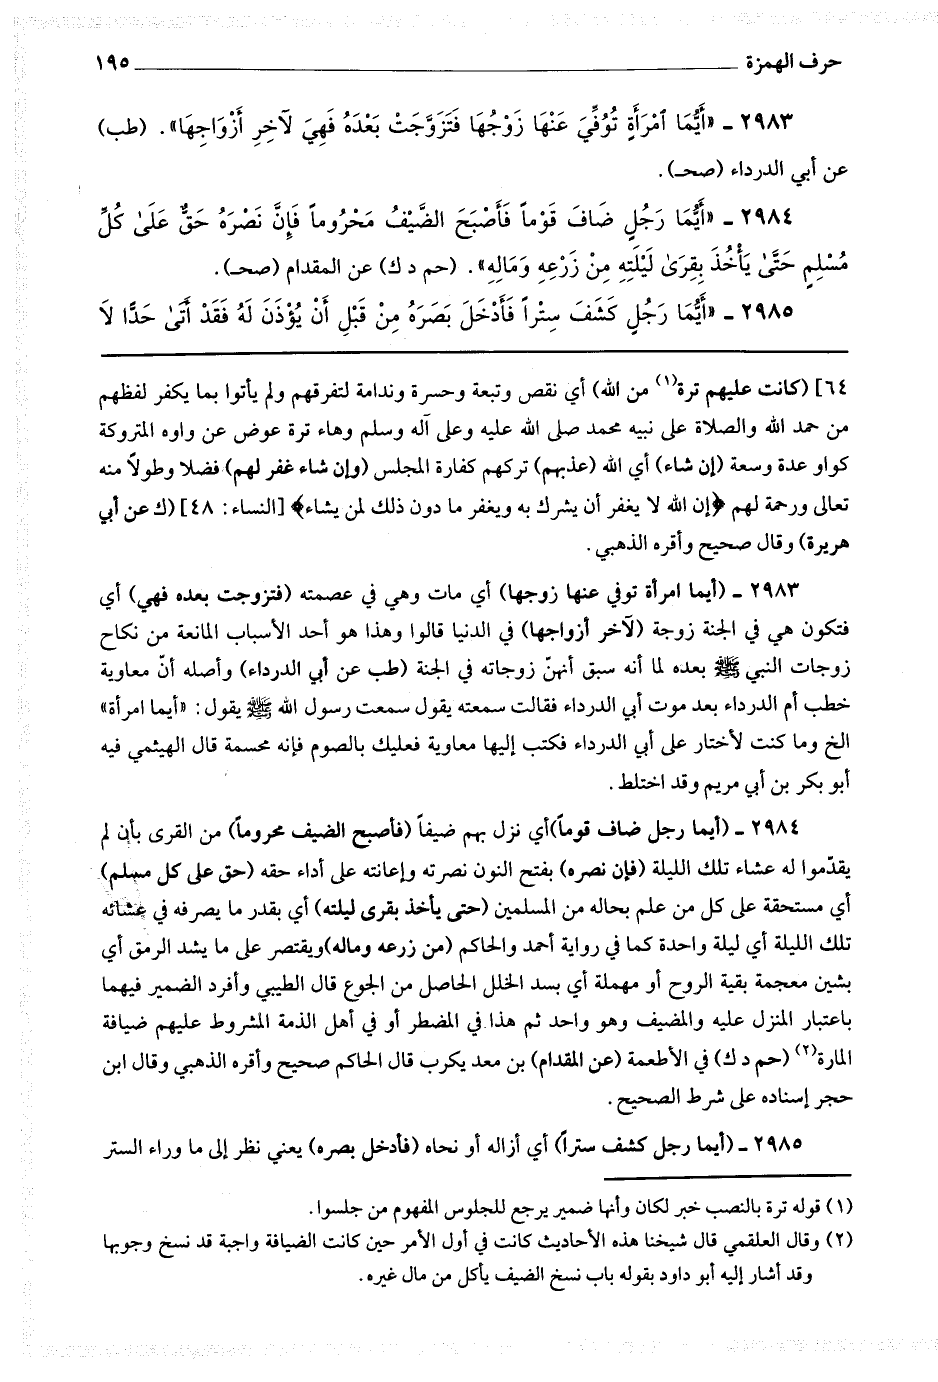 حرف الهمزة ١٩٥
٢٩٨٣ ـ «أَيُّمَا ٱمْرَأَةٍ تُوُفِّيَ عَنْهَا زَوْجُهَا فَتَزَوَّجَتْ بَعْدَهُ فَهِيَ لآخِرِ أَزْوَاجِهَا». (طب)
عن أبي الدرداء (صحـ).
٢٩٨٤ ـ «أَيُّمَا رَجُلٍ ضَافَ قَوْماً فَأَصْبَحَ الضَّيْفُ مَحْرُوماً فَإِنَّ نَصْرَهُ حَقٌّ عَلَىٰ كُلِّ
مُسْلِمٍ حَتَّىٰ يَأْخُذَ بِقِرَىٰ لَيْلَتِهِ مِنْ زَرْعِهِ وَمَالِهِ». (حم د ك) عن المقدام (صحـ).
٢٩٨٥ ـ «أَيُّمَا رَجُلٍ كَشَفَ سِتْراً فَأَدْخَلَ بَصَرَهُ مِنْ قَبْلِ أَنْ يُؤْذَنَ لَهُ فَقَدْ أَتَىٰ حَدًّا لَا
٦٤] (كانت عليهم ترة(١) من الله) أي نقص وتبعة وحسرة وندامة لتفرقهم ولم يأتوا بما يكفر لفظهم
من حمد الله والصلاة على نبيه محمد صلى الله عليه وعلى آله وسلم وهاء ترة عوض عن واوه المتروكة
كواو عدة وسعة (إن شاء) أي الله (عذبهم) تركهم كفارة المجلس (وإن شاء غفر لهم) فضلا وطولاً منه
تعالى ورحمة لهم ﴿إن الله لا يغفر أن يشرك به ويغفر ما دون ذلك لمن يشاء﴾ [النساء: ٤٨] (ك عن أبي
هريرة) وقال صحيح وأقره الذهبي.
٢٩٨٣ ـ (أيما امرأة توفي عنها زوجها) أي مات وهي في عصمته (فتزوجت بعده فهي) أي
فتكون هي في الجنة زوجة (لآخر أزواجها) في الدنيا قالوا وهذا هو أحد الأسباب المانعة من نكاح
زوجات النبي ﷺ بعده لما أنه سبق أنهنّ زوجاته في الجنة (طب عن أبي الدرداء) وأصله أنّ معاوية
خطب أم الدرداء بعد موت أبي الدرداء فقالت سمعته يقول سمعت رسول الله ﷺ يقول: «أيما امرأة»
الخ وما كنت لأختار على أبي الدرداء فكتب إليها معاوية فعليك بالصوم فإنه محسمة قال الهيثمي فيه
أبو بكر بن أبي مريم وقد اختلط.
٢٩٨٤ ـ (أيما رجل ضاف قوماً)أي نزل بهم ضيفاً (فأصبح الضيف محروماً) من القرى بأن لم
يقدّموا له عشاء تلك الليلة (فإن نصره) بفتح النون نصرته وإعانته على أداء حقه (حق على كل مسلم)
أي مستحقة على كل من علم بحاله من المسلمين (حتى يأخذ بقرى ليلته) أي بقدر ما يصرفه في عشائه
تلك الليلة أي ليلة واحدة كما في رواية أحمد والحاكم (من زرعه وماله)ويقتصر على ما يشد الرمق أي
بشين معجمة بقية الروح أو مهملة أي بسد الخلل الحاصل من الجوع قال الطيبي وأفرد الضمير فيهما
باعتبار المنزل عليه والمضيف وهو واحد ثم هذا في المضطر أو في أهل الذمة المشروط عليهم ضيافة
المارة(٢) (حم د ك) في الأطعمة (عن المقدام) بن معد يكرب قال الحاكم صحيح وأقره الذهبي وقال ابن
حجر إسناده على شرط الصحيح.
٢٩٨٥ ـ (أيما رجل كشف ستراً) أي أزاله أو نحاه (فأدخل بصره) يعني نظر إلى ما وراء الستر
(١) قوله ترة بالنصب خبر لكان وأنها ضمير يرجع للجلوس المفهوم من جلسوا.
(٢) وقال العلقمي قال شيخنا هذه الأحاديث كانت في أول الأمر حين كانت الضيافة واجبة قد نسخ وجوبها
وقد أشار إليه أبو داود بقوله باب نسخ الضيف يأكل من مال غيره.